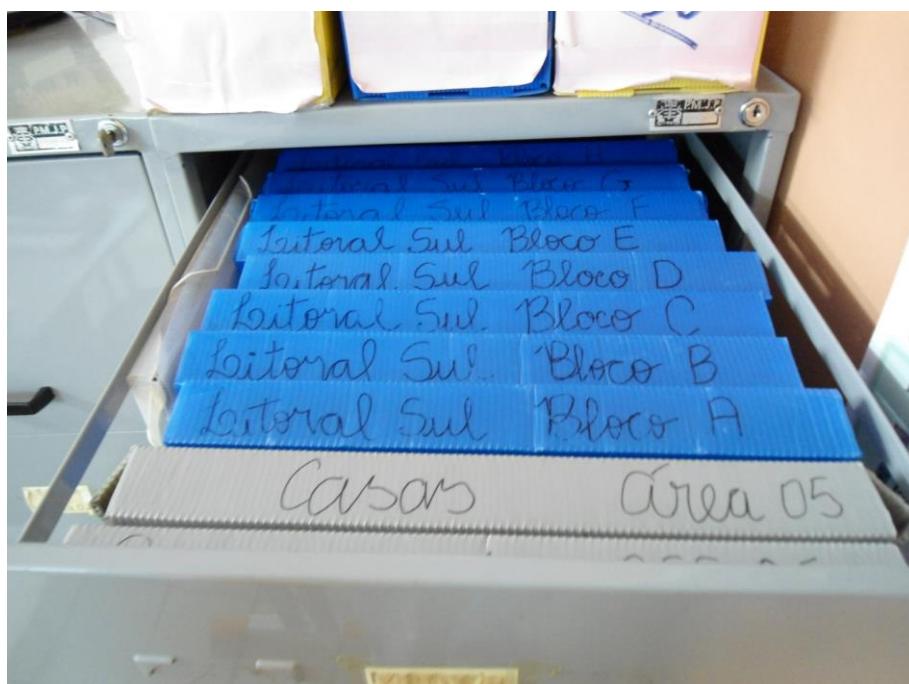 P.M.J.P.
P.M.J.P.
Bloco H
Litoral Sul Bloco G
Litoral Sul Bloco F
Litoral Sul Bloco E
Litoral Sul Bloco D
Litoral Sul Bloco C
Litoral Sul Bloco B
Litoral Sul Bloco A
Casas Área 05